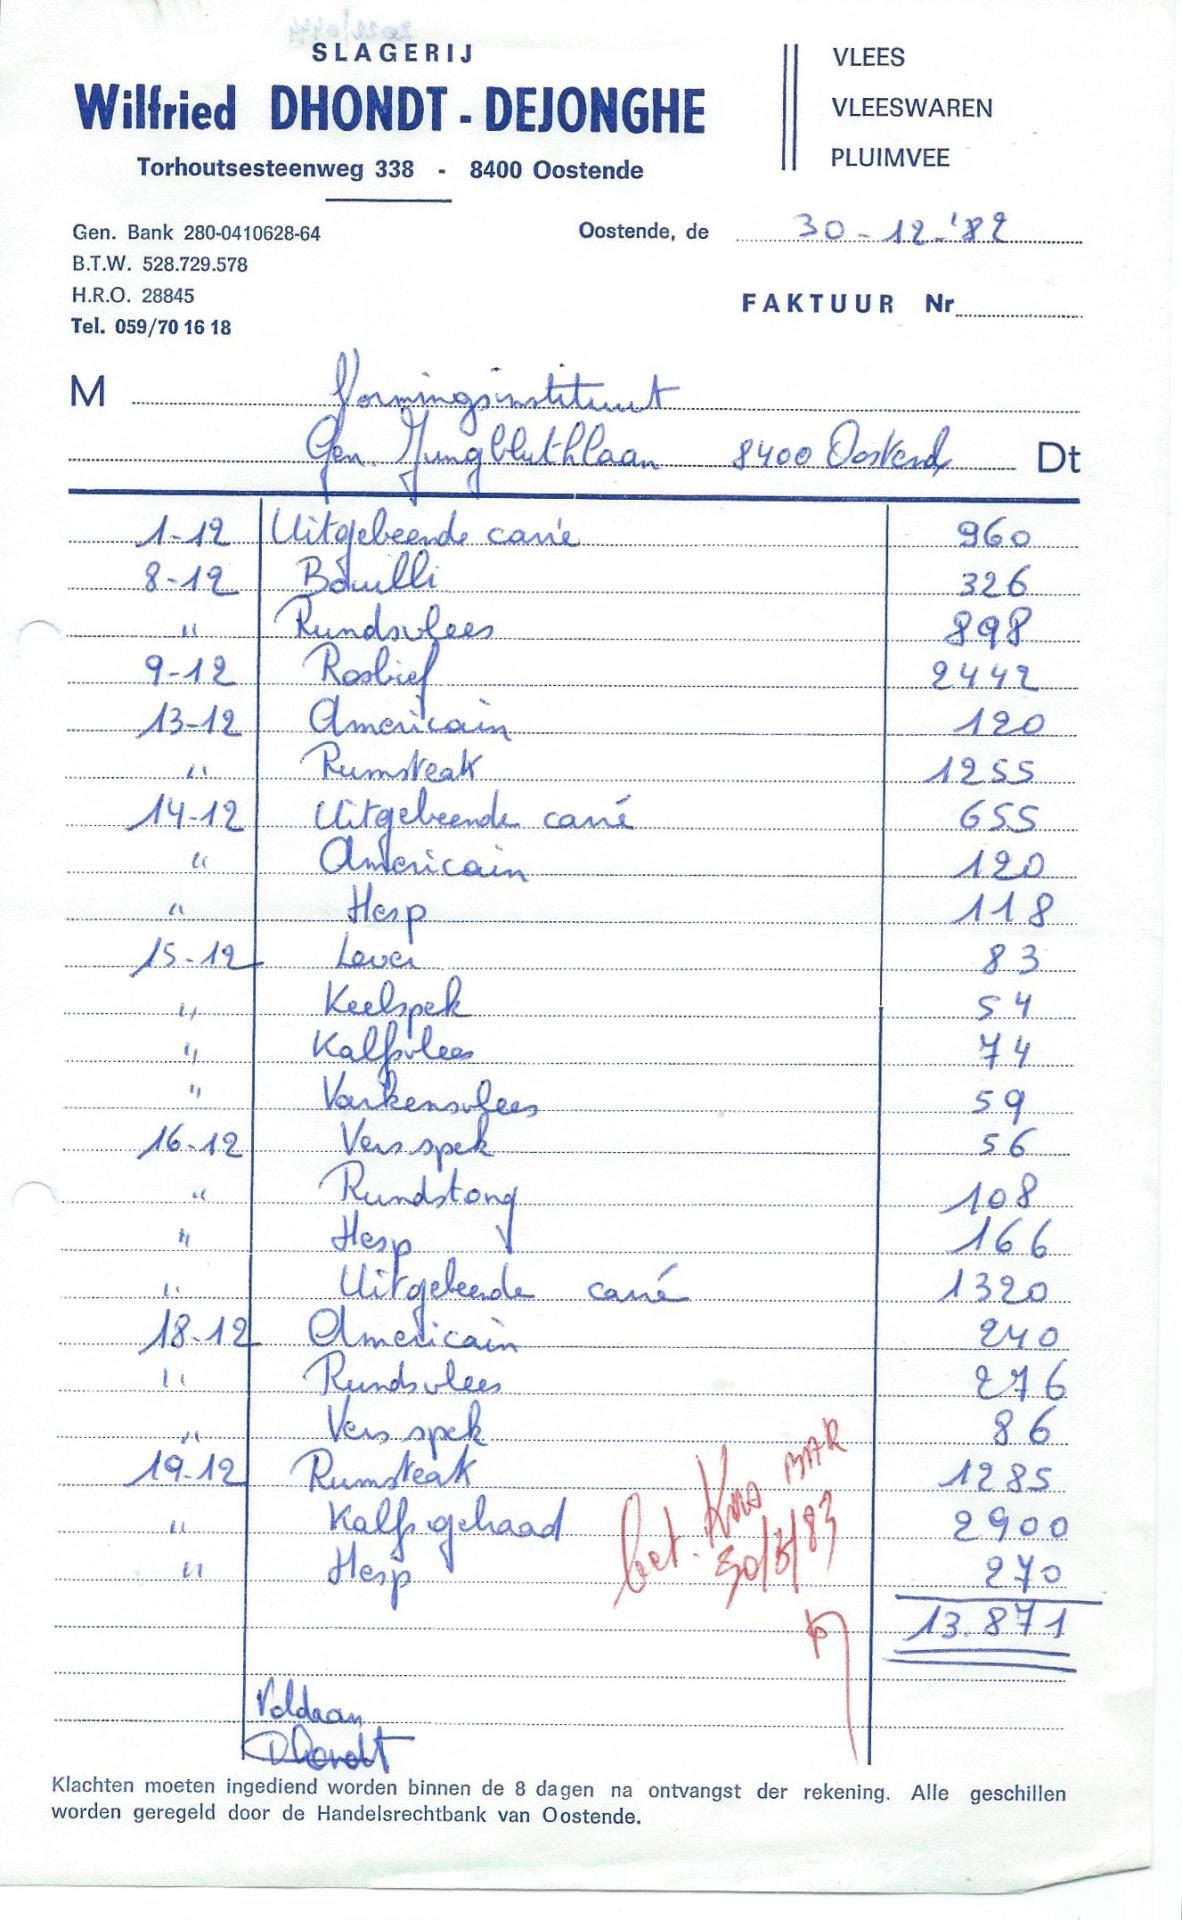 SLAGERIJ
Wilfried DHONDT - DEJONGHE
Torhoutsesteenweg 338 - 8400 Oostende
VLEES
VLEESWAREN
PLUIMVEE
Gen. Bank 280-0410628-64
B.T.W. 528.729.578
H.R.O. 28845
Tel. 059/70 16 18
Oostende, de 30-12-'82
FAKTUUR Nr
M Vormingsinstituut
Gen. Jungbluthlaan 8400 Oostend Dt
1-12 Uitgebeende carré 960
8-12 Bouilli 326
" Rundsvlees 898
9-12 Rosbief 2442
13-12 Americain 120
" Rumsteak 1255
14-12 Uitgebeende carré 655
" Americain 120
" Hesp 118
15-12 Lever 83
" Keelspek 54
" Kalfsvlees 74
" Varkensvlees 59
16-12 Vers spek 56
" Rundstong 108
" Hesp 166
" Uitgebeende carré 1320
18-12 Americain 240
" Rundsvlees 276
" Vers spek 86
19-12 Rumsteak 1285
" Kalfsgehaad 2900
" Hesp 270
13.871
bet. Kas BAR
Voldaan
Dhondt
Klachten moeten ingediend worden binnen de 8 dagen na ontvangst der rekening. Alle geschillen
worden geregeld door de Handelsrechtbank van Oostende.